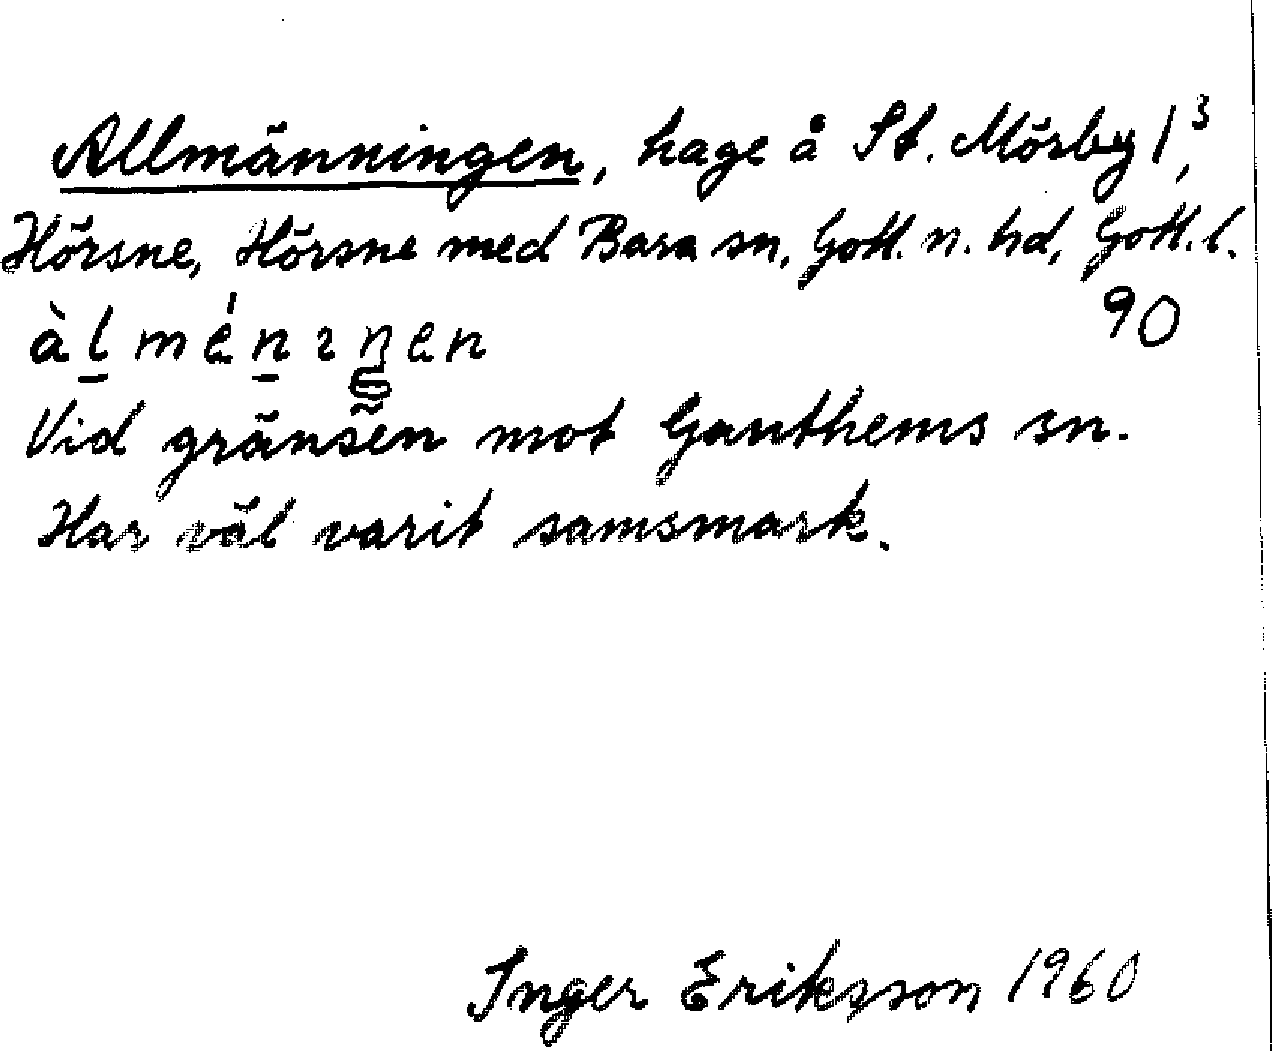 Allmänningen, hage å St. Mörby 1³,
Hörsne, Hörsne med Bara sn, Gotl. n. hd, Gotl. l.
àl̲mén̲ıŋen 90
Vid gränsen mot Ganthems sn.
Har väl varit samsmark.
Inger Eriksson 1960